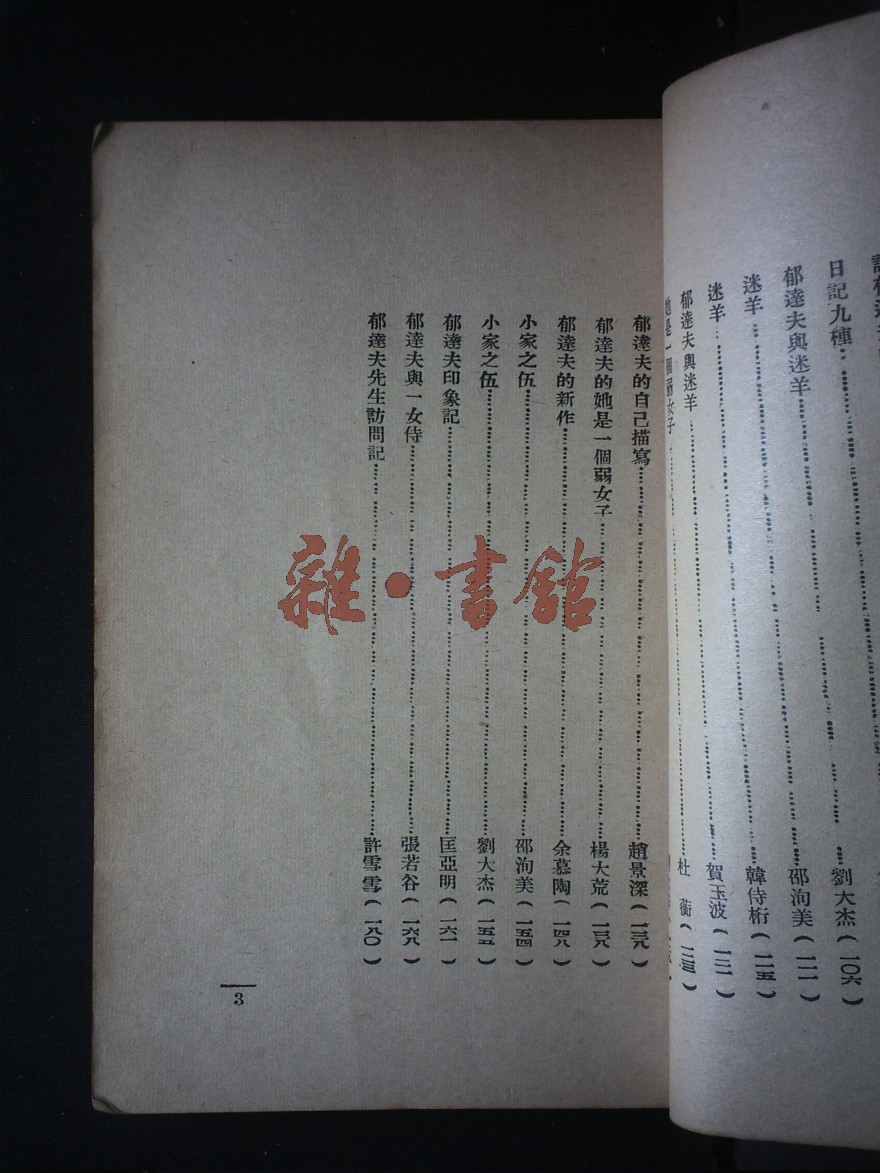 日記九種 劉大杰(一〇六)
郁達夫與迷羊 邵洵美(一一一)
迷羊 韓侍桁(一一五)
迷羊 賀玉波(一二一)
郁達夫與迷羊 杜衡
她是一個弱女子
郁達夫的自己描寫 趙景深
郁達夫的她是一個弱女子 楊大荒(一三八)
郁達夫的新作 余慕陶(一四八)
小家之伍 邵洵美(一五四)
小家之伍 劉大杰(一五五)
郁達夫印象記 匡亞明(一六一)
郁達夫與一女侍 張若谷(一六八)
郁達夫先生訪問記 許雪雪(一八〇)
3
雜·書館